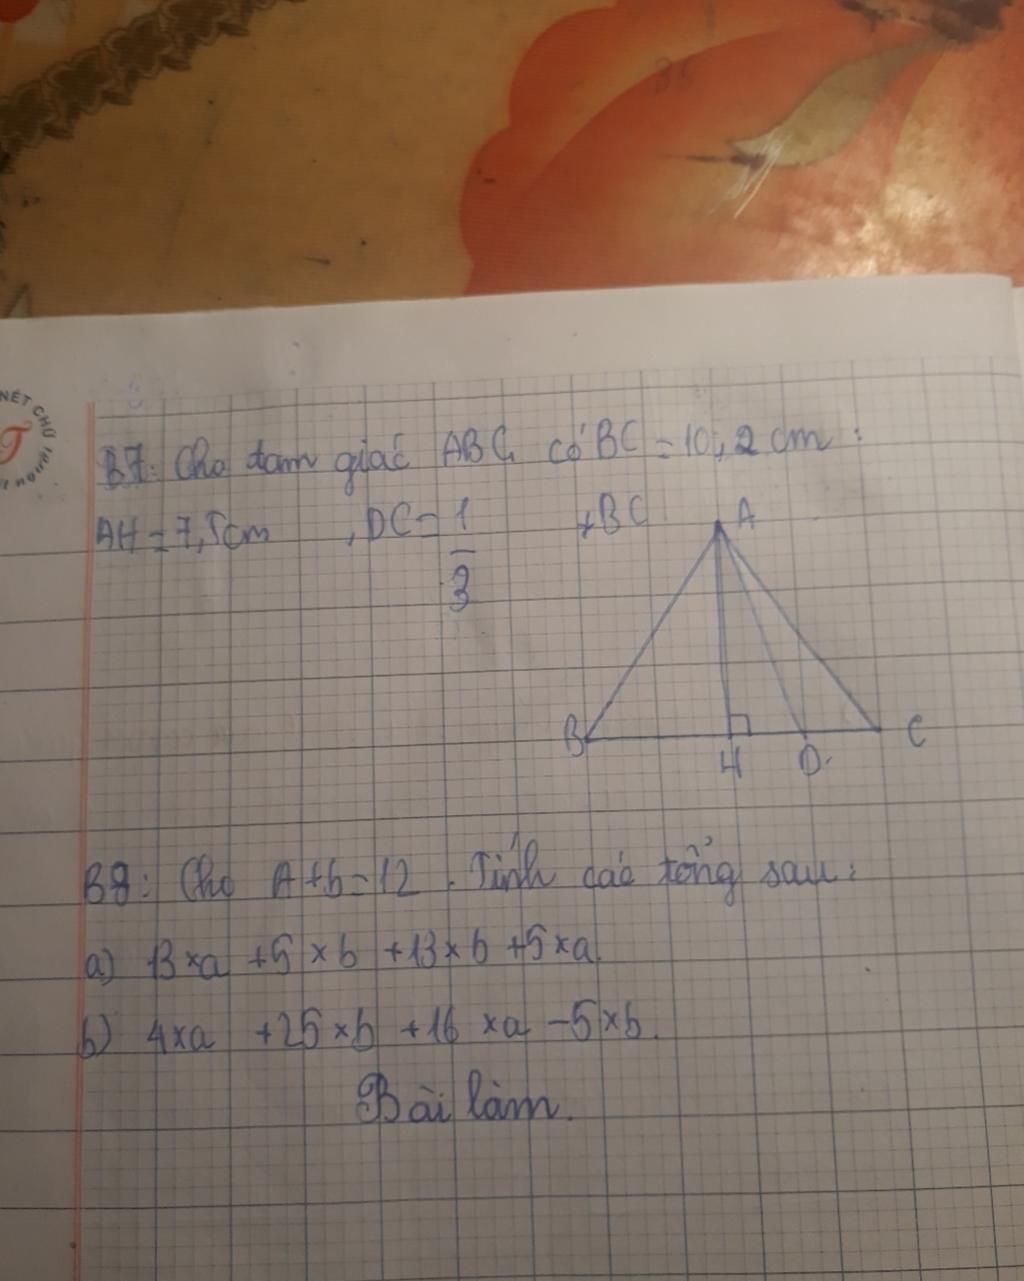 NÉT CHỮ
B7: Cho tam giác ABC có BC = 10,2 cm :
AH = 7,5cm , DC = 1/3 × BC
A
B H D C
B8: Cho A + b = 12 . Tính các tổng sau :
a) 13 × a + 5 × b + 13 × b + 5 × a.
b) 4 × a + 25 × b + 16 × a - 5 × b.
Bài làm.